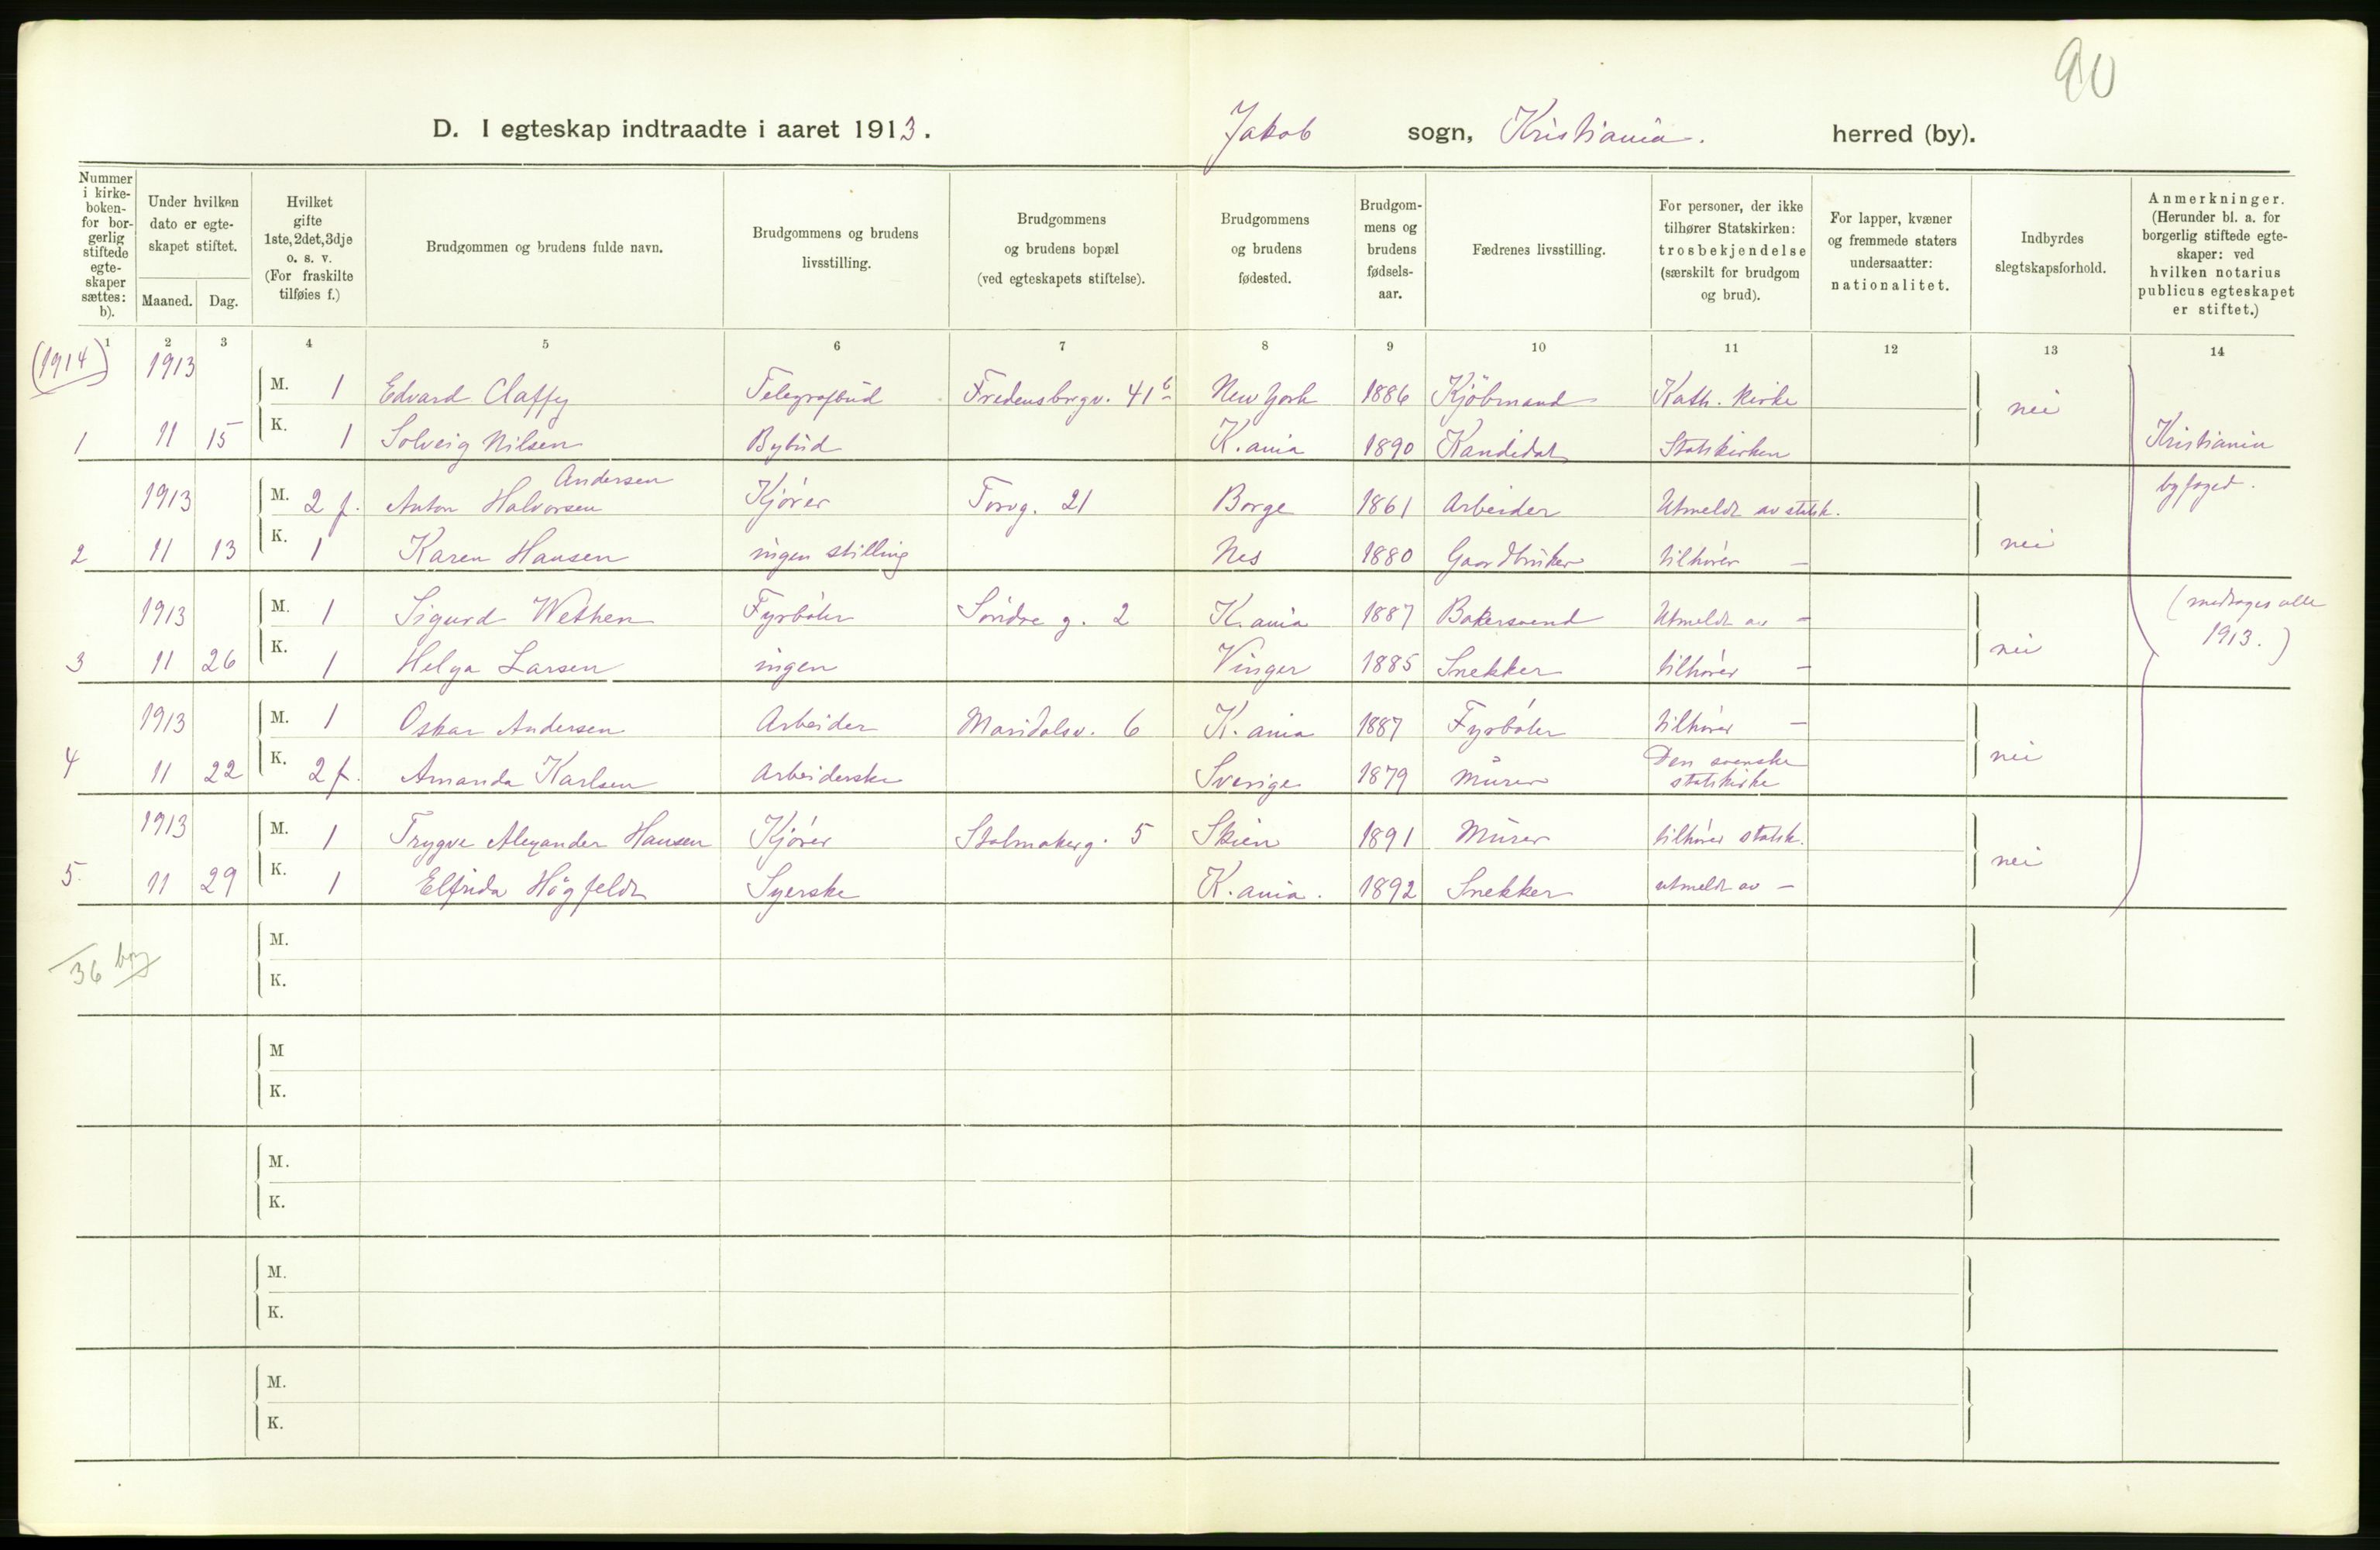 90
D. I egteskap indtraadte i aaret 1913. Jakob sogn, Kristiania. herred (by).
Nummer i kirke-boken- for bor-gerlig stiftede egte-skaper sættes: b).
Under hvilken dato er egte-skapet stiftet.
Maaned. Dag.
Hvilket gifte 1ste, 2det, 3dje o. s. v. (For fraskilte tilføies f.)
Brudgommen og brudens fulde navn.
Brudgommens og brudens livsstilling.
Brudgommens og brudens bopæl (ved egteskapets stiftelse).
Brudgommens og brudens fødested.
Brudgom-mens og brudens fødsels-aar.
Fædrenes livsstilling.
For personer, der ikke tilhører Statskirken: trosbekjendelse (særskilt for brudgom og brud).
For lapper, kvæner og fremmede staters undersaatter: nationalitet.
Indbyrdes slegtskapsforhold.
Anmerkninger. (Herunder bl. a. for borgerlig stiftede egte-skaper: ved hvilken notarius publicus egteskapet er stiftet.)
1 2 3 4 5 6 7 8 9 10 11 12 13 14
(1914) 1913 M. 1 Edvard Claffy Telegrafbud Fredensborgv. 41b New York 1886 Kjöbmand Kath. kirke nei
1 11 15 K. 1 Solveig Nilsen Bybud K.ania 1890 Kandidat Statskirken Kristiania
Andersen
1913 M. 2 f. Anton Halvorsen Kjörer Torvg. 21 Borge 1861 Arbeider Utmeldt av statsk. byfoged.
2 11 13 K. 1 Karen Hansen ingen stilling Nes 1880 Gaardbruker tilhörer — nei
1913 M. 1 Sigurd Wethen Fyrböter Söndre g. 2 K.ania 1887 Bakersvend Utmeldt av — (medtages alle
3 11 26 K. 1 Helga Larsen ingen Vinger 1885 Snekker tilhörer — nei 1913.)
1913 M. 1 Oskar Andersen Arbeider Maridalsv. 6 K.ania 1887 Fyrböter tilhörer —
4 11 22 K. 2 f. Amanda Karlsen Arbeiderske Sverige 1879 Murer Den svenske statskirke nei
1913 M. 1 Trygve Alexander Hansen Kjörer Stolmakerg. 5 Skien 1891 Murer tilhörer statsk.
5. 11 29 K. 1 Elfrida Högfeldt Syerske K.ania. 1892 Snekker utmeldt av — nei
M.
36 K.
M
K.
M.
K.
M.
K.
M.
K.